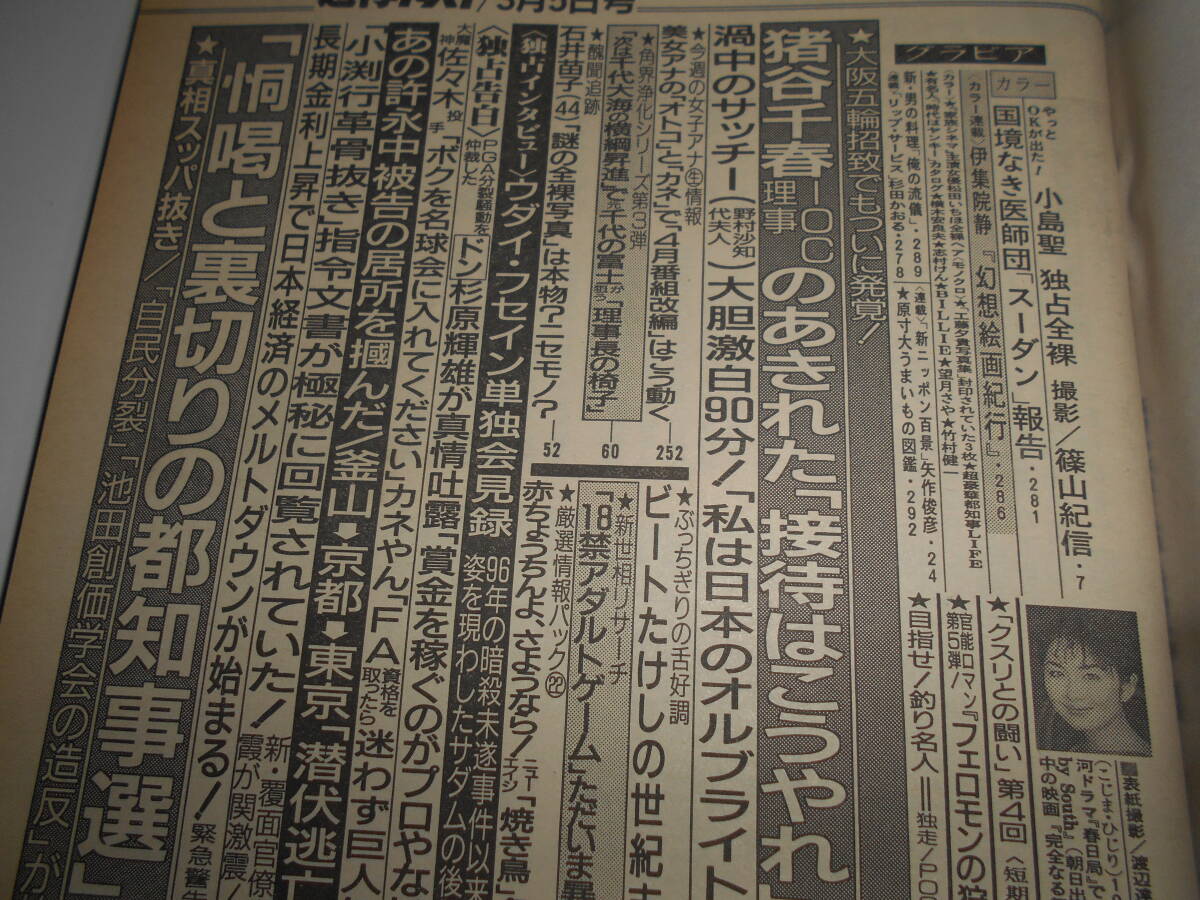 /3月5日号
グラビア
カラー
やっと
OKが出た!
小島聖 独占全裸 撮影/篠山紀信・7
国境なき医師団「スーダン」報告・281
〈カラー連載〉伊集院静『幻想絵画紀行』・286
新・男の料理「俺の流儀」・289
〈連載〉「新ニッポン百景」矢作俊彦・24
〈連載〉「リップ・サービス」杉田かおる・278
★原寸大うまいもの図鑑・292
★大阪五輪招致でもついに発覚!
猪谷千春IOC理事のあきれた「接待はこうやれ」
渦中のサッチー(野村沙知代夫人)大胆激白90分!「私は日本のオルブライト
★今週の女子アナ生情報
美女アナの「オトコ」と「カネ」で「4月番組改編」はこう動く
252
★角界浄化シリーズ第3弾
「次は千代大海の横綱昇進」で千代の富士が狙う「理事長の椅子」
60
★醜聞追跡
石井苗子(44)「謎の全裸写真」は本物?ニセモノ?
52
〈独占インタビュー〉ウダイ・フセイン単独会見録
96年の暗殺未遂事件以来
姿を現わしたサダムの後
〈独占告白〉
PGA分裂騒動を
仲裁した
ドン杉原輝雄が真情吐露「賞金を稼ぐのがプロやな
大魔神佐々木投手「ボクを名球会に入れてください」カネやん「FA資格を取ったら迷わず巨人
あの許永中被告の居所を摑んだ/釜山➡京都➡東京「潜伏逃亡
「小渕行革骨抜き」指令文書が極秘に回覧されていた!
新・覆面官僚
霞が関激震/
長期金利上昇で日本経済のメルトダウンが始まる!
緊急警告
「恫喝と裏切りの都知事選」
★真相スッパ抜き/「自民分裂」「池田創価学会の造反」が
★ぶっちぎりの舌好調
ビートたけしの世紀末
★新世相リサーチ
「18禁アダルトゲーム」ただいま暴
★厳選情報パック㉒
赤ちょうちんよ、さようなら!ニューエイジ「焼き鳥」
★「クスリとの闘い」第4回〈短期
★官能ロマン
第5弾!
『フェロモンの狩
★目指せ!釣り名人=独走/PO
■表紙撮影/渡辺達
(こじま・ひじり)19
河ドラマ『春日局』で
by South』(朝日出
中の映画『完全なる